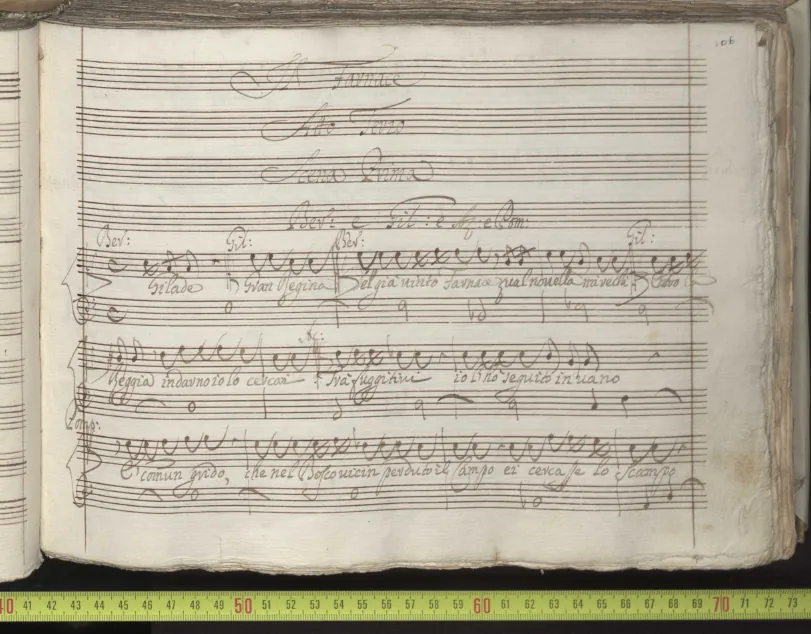 106
Il Farnace
Atto Terzo
Scena Prima
Ber: e Gil: e Aq: e Pom:
Ber: Gil: Ber: Gil:
Gilade Gran Regina Del già vinto Farnace qual novella mi rechi
Reggia indarno io lo cercai Fra fuggitivi io l'hò seguito in vano
Pomp:
È comun grido, che nel Bosco vicin perduto il campo ei cercasse lo scampo
40 41 42 43 44 45 46 47 48 49 50 51 52 53 54 55 56 57 58 59 60 61 62 63 64 65 66 67 68 69 70 71 72 73